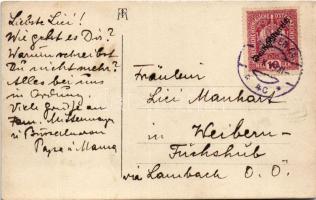 Liebste Lici!
Wie geht es Dir?
Warum schreibst
Du nicht mehr?
Alles bei uns
in Ordnung.
Viele Grüße an
Fam. Mittermayr
u
Papa u Mama
Fräulein
Lici Manhart
in Weibern-
Fuchshub
via Lambach O.Ö.
10